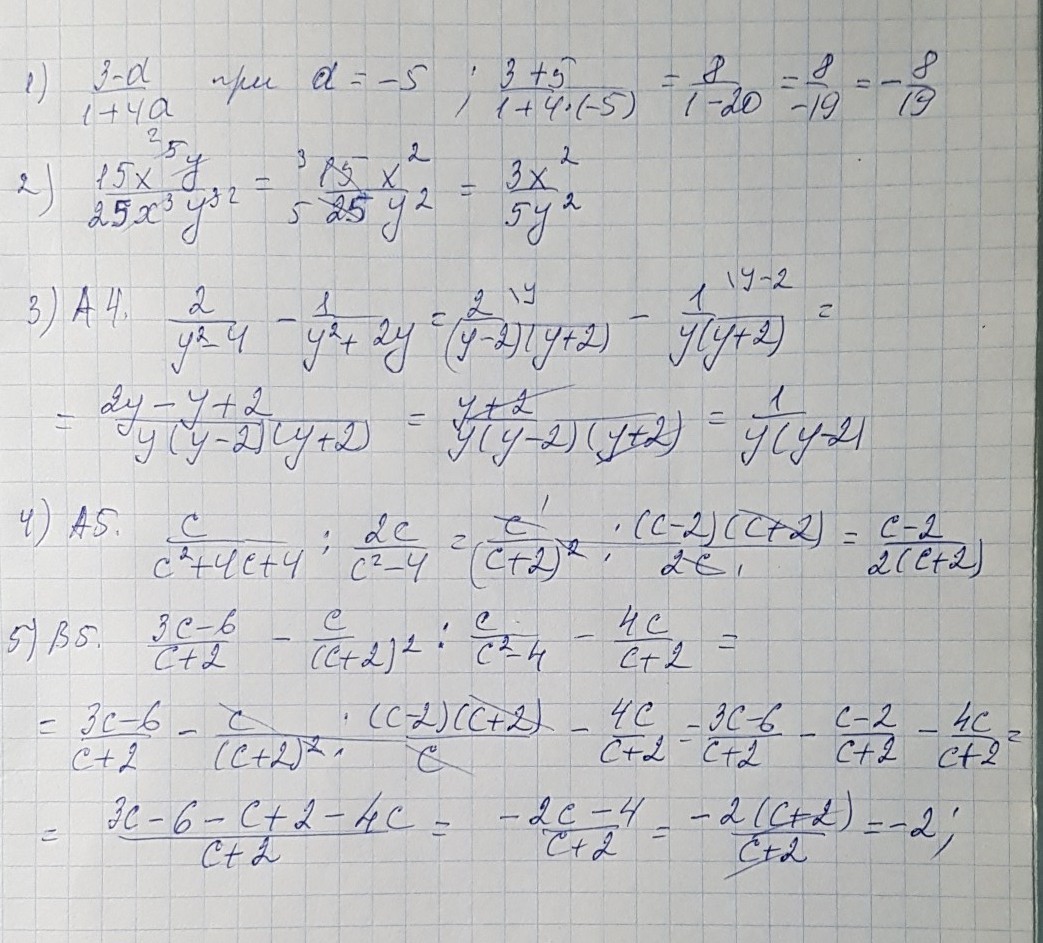 1) (3-a)/(1+4a) при a = -5 ; (3+5)/(1+4·(-5)) = 8/(1-20) = 8/(-19) = -8/19
2) (15x⁵y)/(25x³y³) = (15x²)/(25y²) = (3x²)/(5y²)
3) A4. 2/(y²-4) - 1/(y²+2y) = 2\y/((y-2)(y+2)) - 1\y-2/(y(y+2)) =
= (2y-y+2)/(y(y-2)(y+2)) = (y+2)/(y(y-2)(y+2)) = 1/(y(y-2)
4) A5. c/(c²+4c+4) : 2c/(c²-4) = c/(c+2)² · ((c-2)(c+2))/(2c) = (c-2)/(2(c+2))
5) B5. (3c-6)/(c+2) - c/(c+2)² : c/(c²-4) - 4c/(c+2) =
= (3c-6)/(c+2) - c/(c+2)² · ((c-2)(c+2))/c - 4c/(c+2) = (3c-6)/(c+2) - (c-2)/(c+2) - 4c/(c+2) =
= (3c-6-c+2-4c)/(c+2) = (-2c-4)/(c+2) = (-2(c+2))/(c+2) = -2;